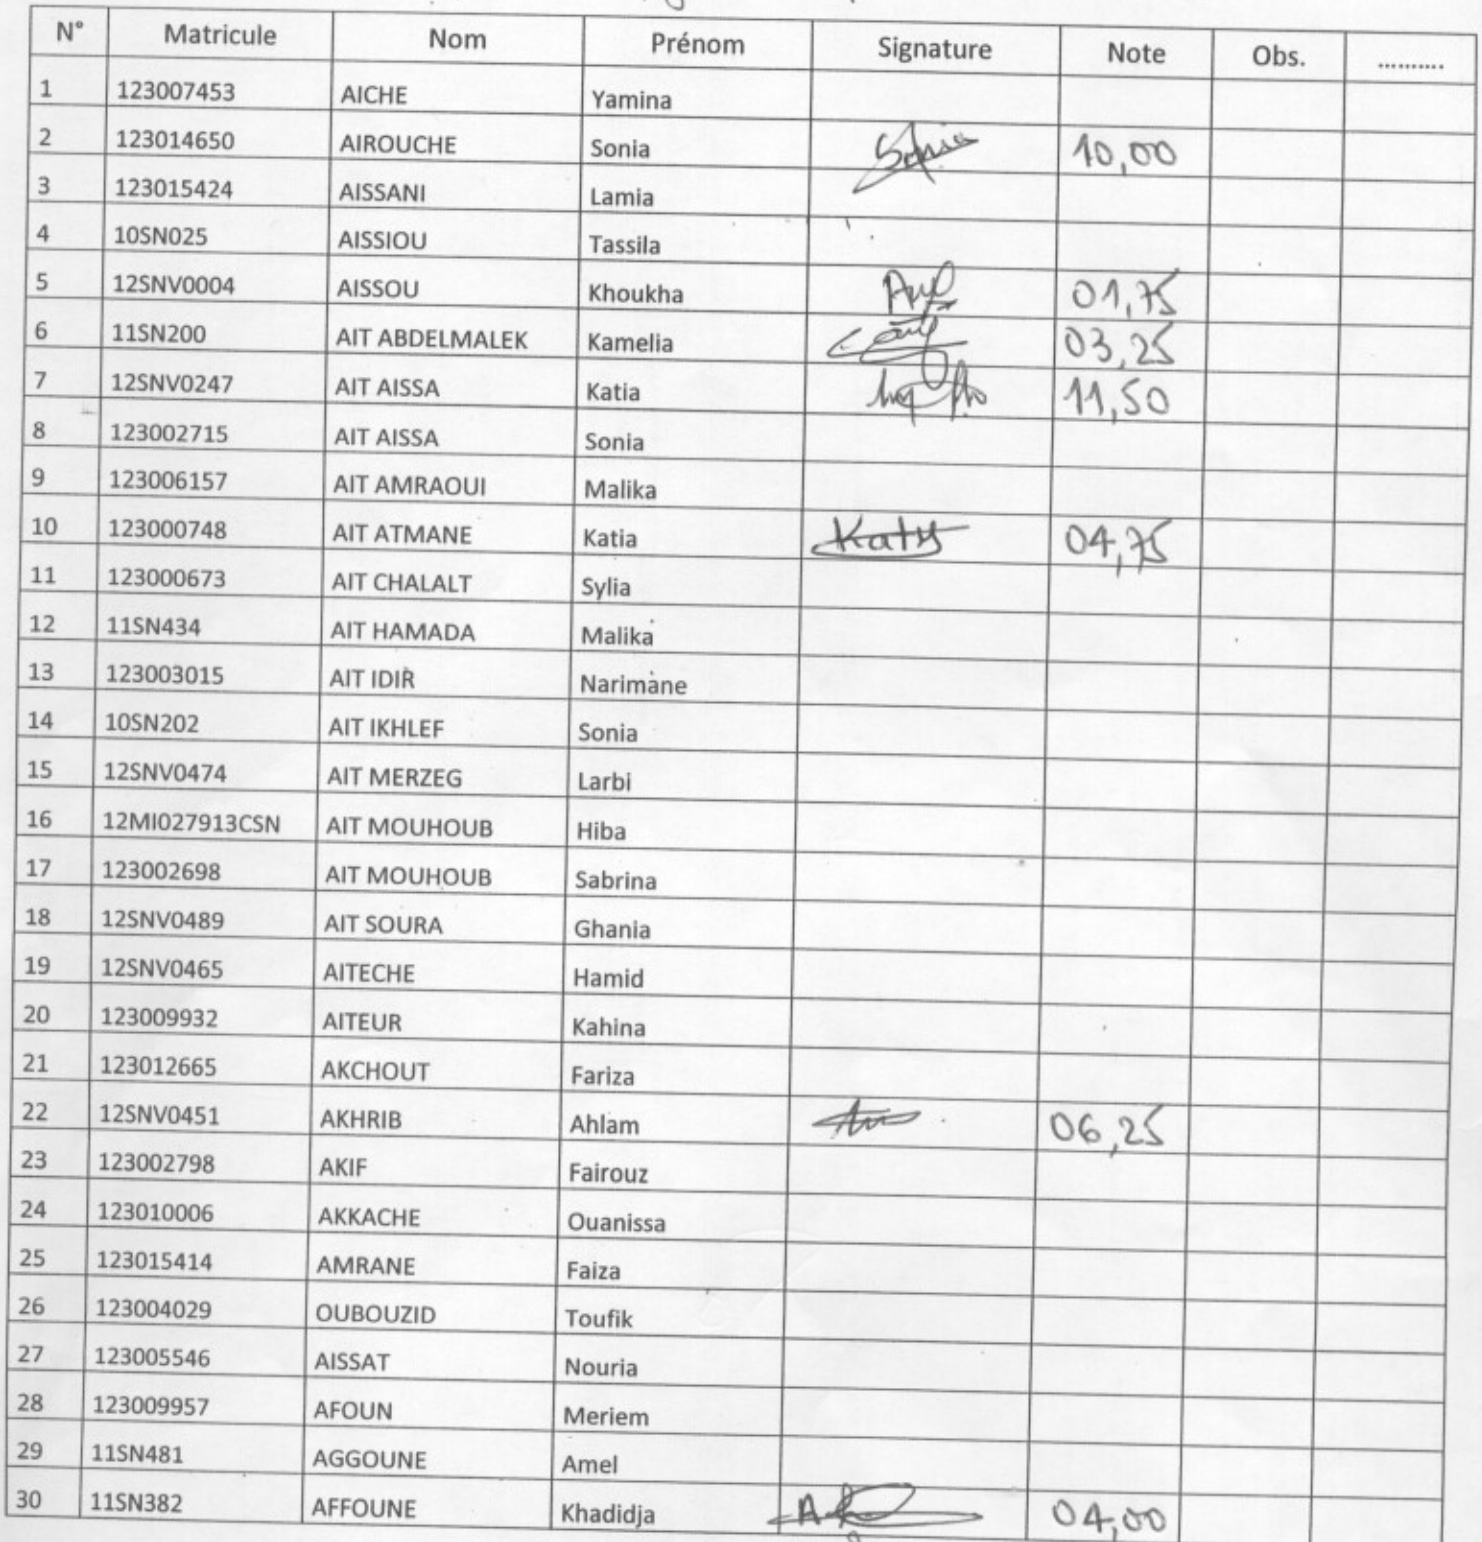 N° Matricule Nom Prénom Signature Note Obs. ..........
1 123007453 AICHE Yamina
2 123014650 AIROUCHE Sonia Sonia 10,00
3 123015424 AISSANI Lamia
4 10SN025 AISSIOU Tassila
5 12SNV0004 AISSOU Khoukha 01,75
6 11SN200 AIT ABDELMALEK Kamelia 03,25
7 12SNV0247 AIT AISSA Katia 11,50
8 123002715 AIT AISSA Sonia
9 123006157 AIT AMRAOUI Malika
10 123000748 AIT ATMANE Katia Katy 04,75
11 123000673 AIT CHALALT Sylia
12 11SN434 AIT HAMADA Malika
13 123003015 AIT IDIR Narimane
14 10SN202 AIT IKHLEF Sonia
15 12SNV0474 AIT MERZEG Larbi
16 12MI027913CSN AIT MOUHOUB Hiba
17 123002698 AIT MOUHOUB Sabrina
18 12SNV0489 AIT SOURA Ghania
19 12SNV0465 AITECHE Hamid
20 123009932 AITEUR Kahina
21 123012665 AKCHOUT Fariza
22 12SNV0451 AKHRIB Ahlam 06,25
23 123002798 AKIF Fairouz
24 123010006 AKKACHE Ouanissa
25 123015414 AMRANE Faiza
26 123004029 OUBOUZID Toufik
27 123005546 AISSAT Nouria
28 123009957 AFOUN Meriem
29 11SN481 AGGOUNE Amel
30 11SN382 AFFOUNE Khadidja 04,00